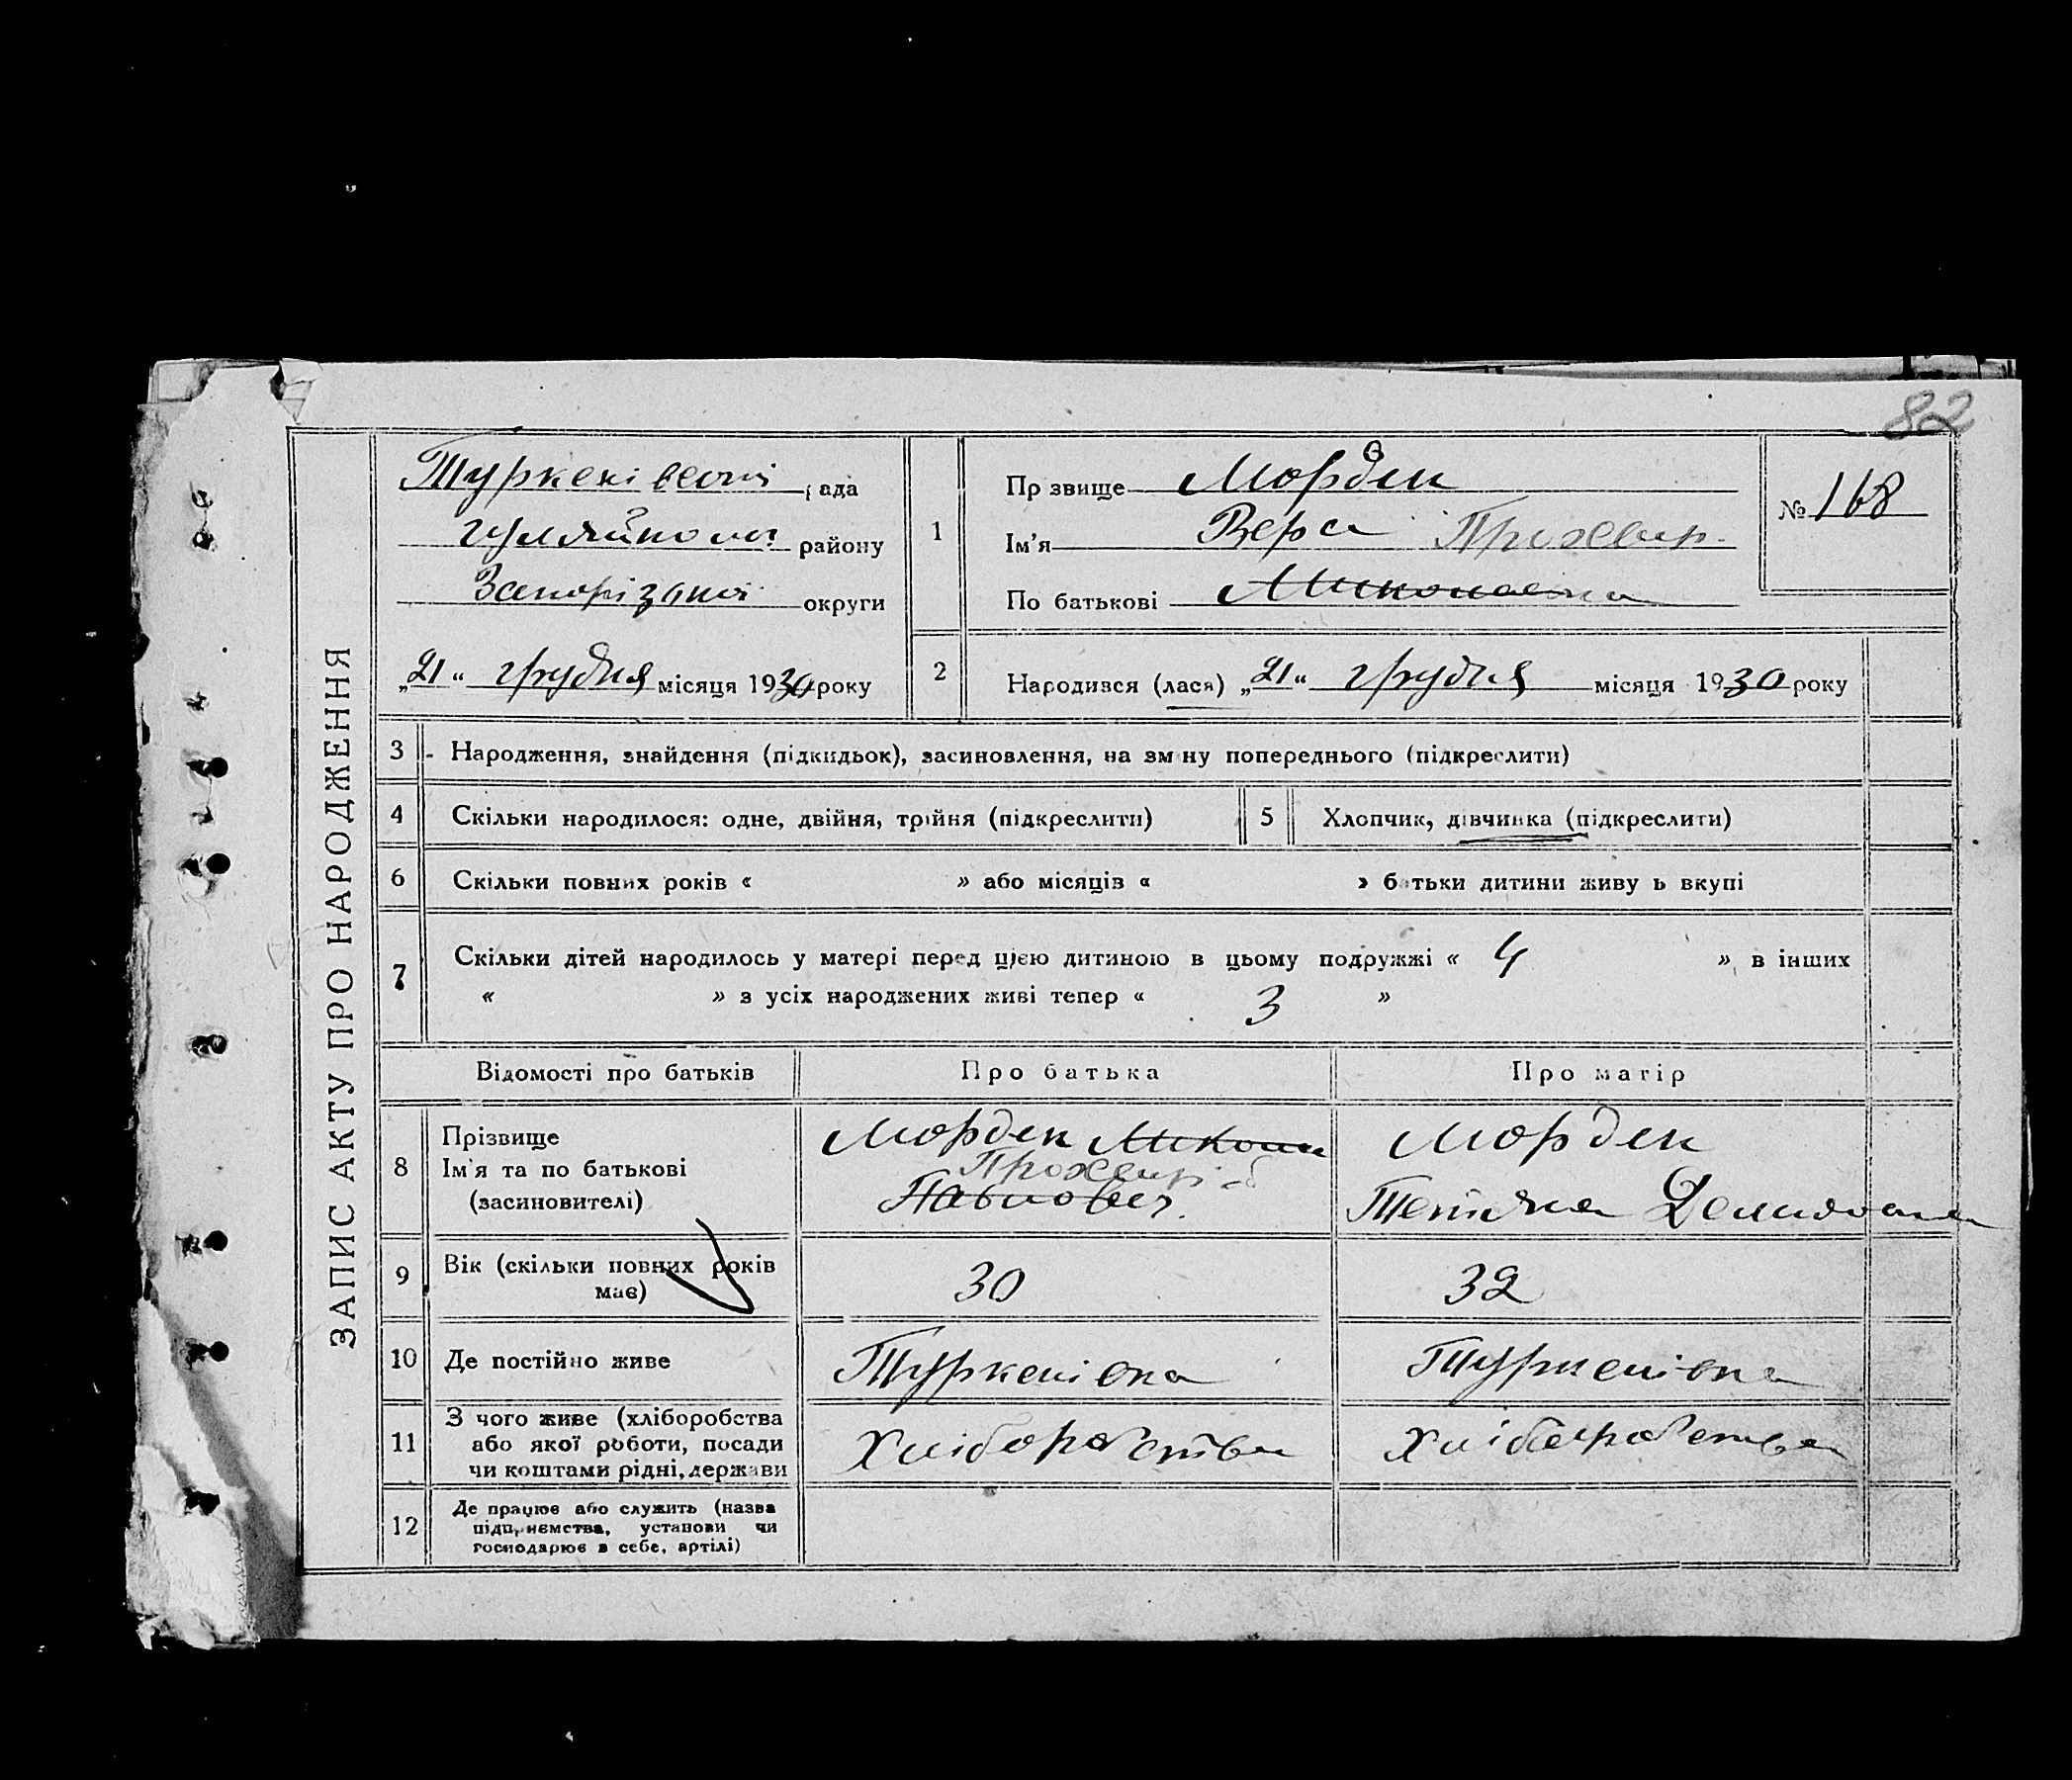 82
ЗАПИС АКТУ ПРО НАРОДЖЕННЯ
Туркенівської рада
Гуляйполь. району
Запорізької округи
„21“ грудня місяця 1930 року
1
Прзвище Морден
Ім'я Вера Прохвир.
По батькові Миколаевна
№ 168
2
Народився (лася) „21“ грудня місяця 1930 року
3 - Народження, знайдення (підкидьок), засиновлення, на зміну попереднього (підкреслити)
4 Скільки народилося: одне, двійня, трійня (підкреслити)
5 Хлопчик, дівчинка (підкреслити)
6 Скільки повних років « » або місяців « » батьки дитини живуь вкупі
7 Скільки дітей народилось у матері перед цією дитиною в цьому подружжі « 4 » в інших
« » з усіх народжених живі тепер « 3 »
Відомості про батьків
Про батька
Про матір
8 Прізвище
Ім'я та по батькові
(засиновителі)
Морден Микола
Павлович
Морден
Тетяна Демяновна
9 Вік (скільки повних років
має)
30
32
10 Де постійно живе
Туркенівка
Туркенівка
11 З чого живе (хліборобства
або якої роботи, посади
чи коштами рідні, держави
Хліборобства
Хліборобства
12 Де працює або служить (назва
підприємства, установи чи
господарює в себе, артілі)